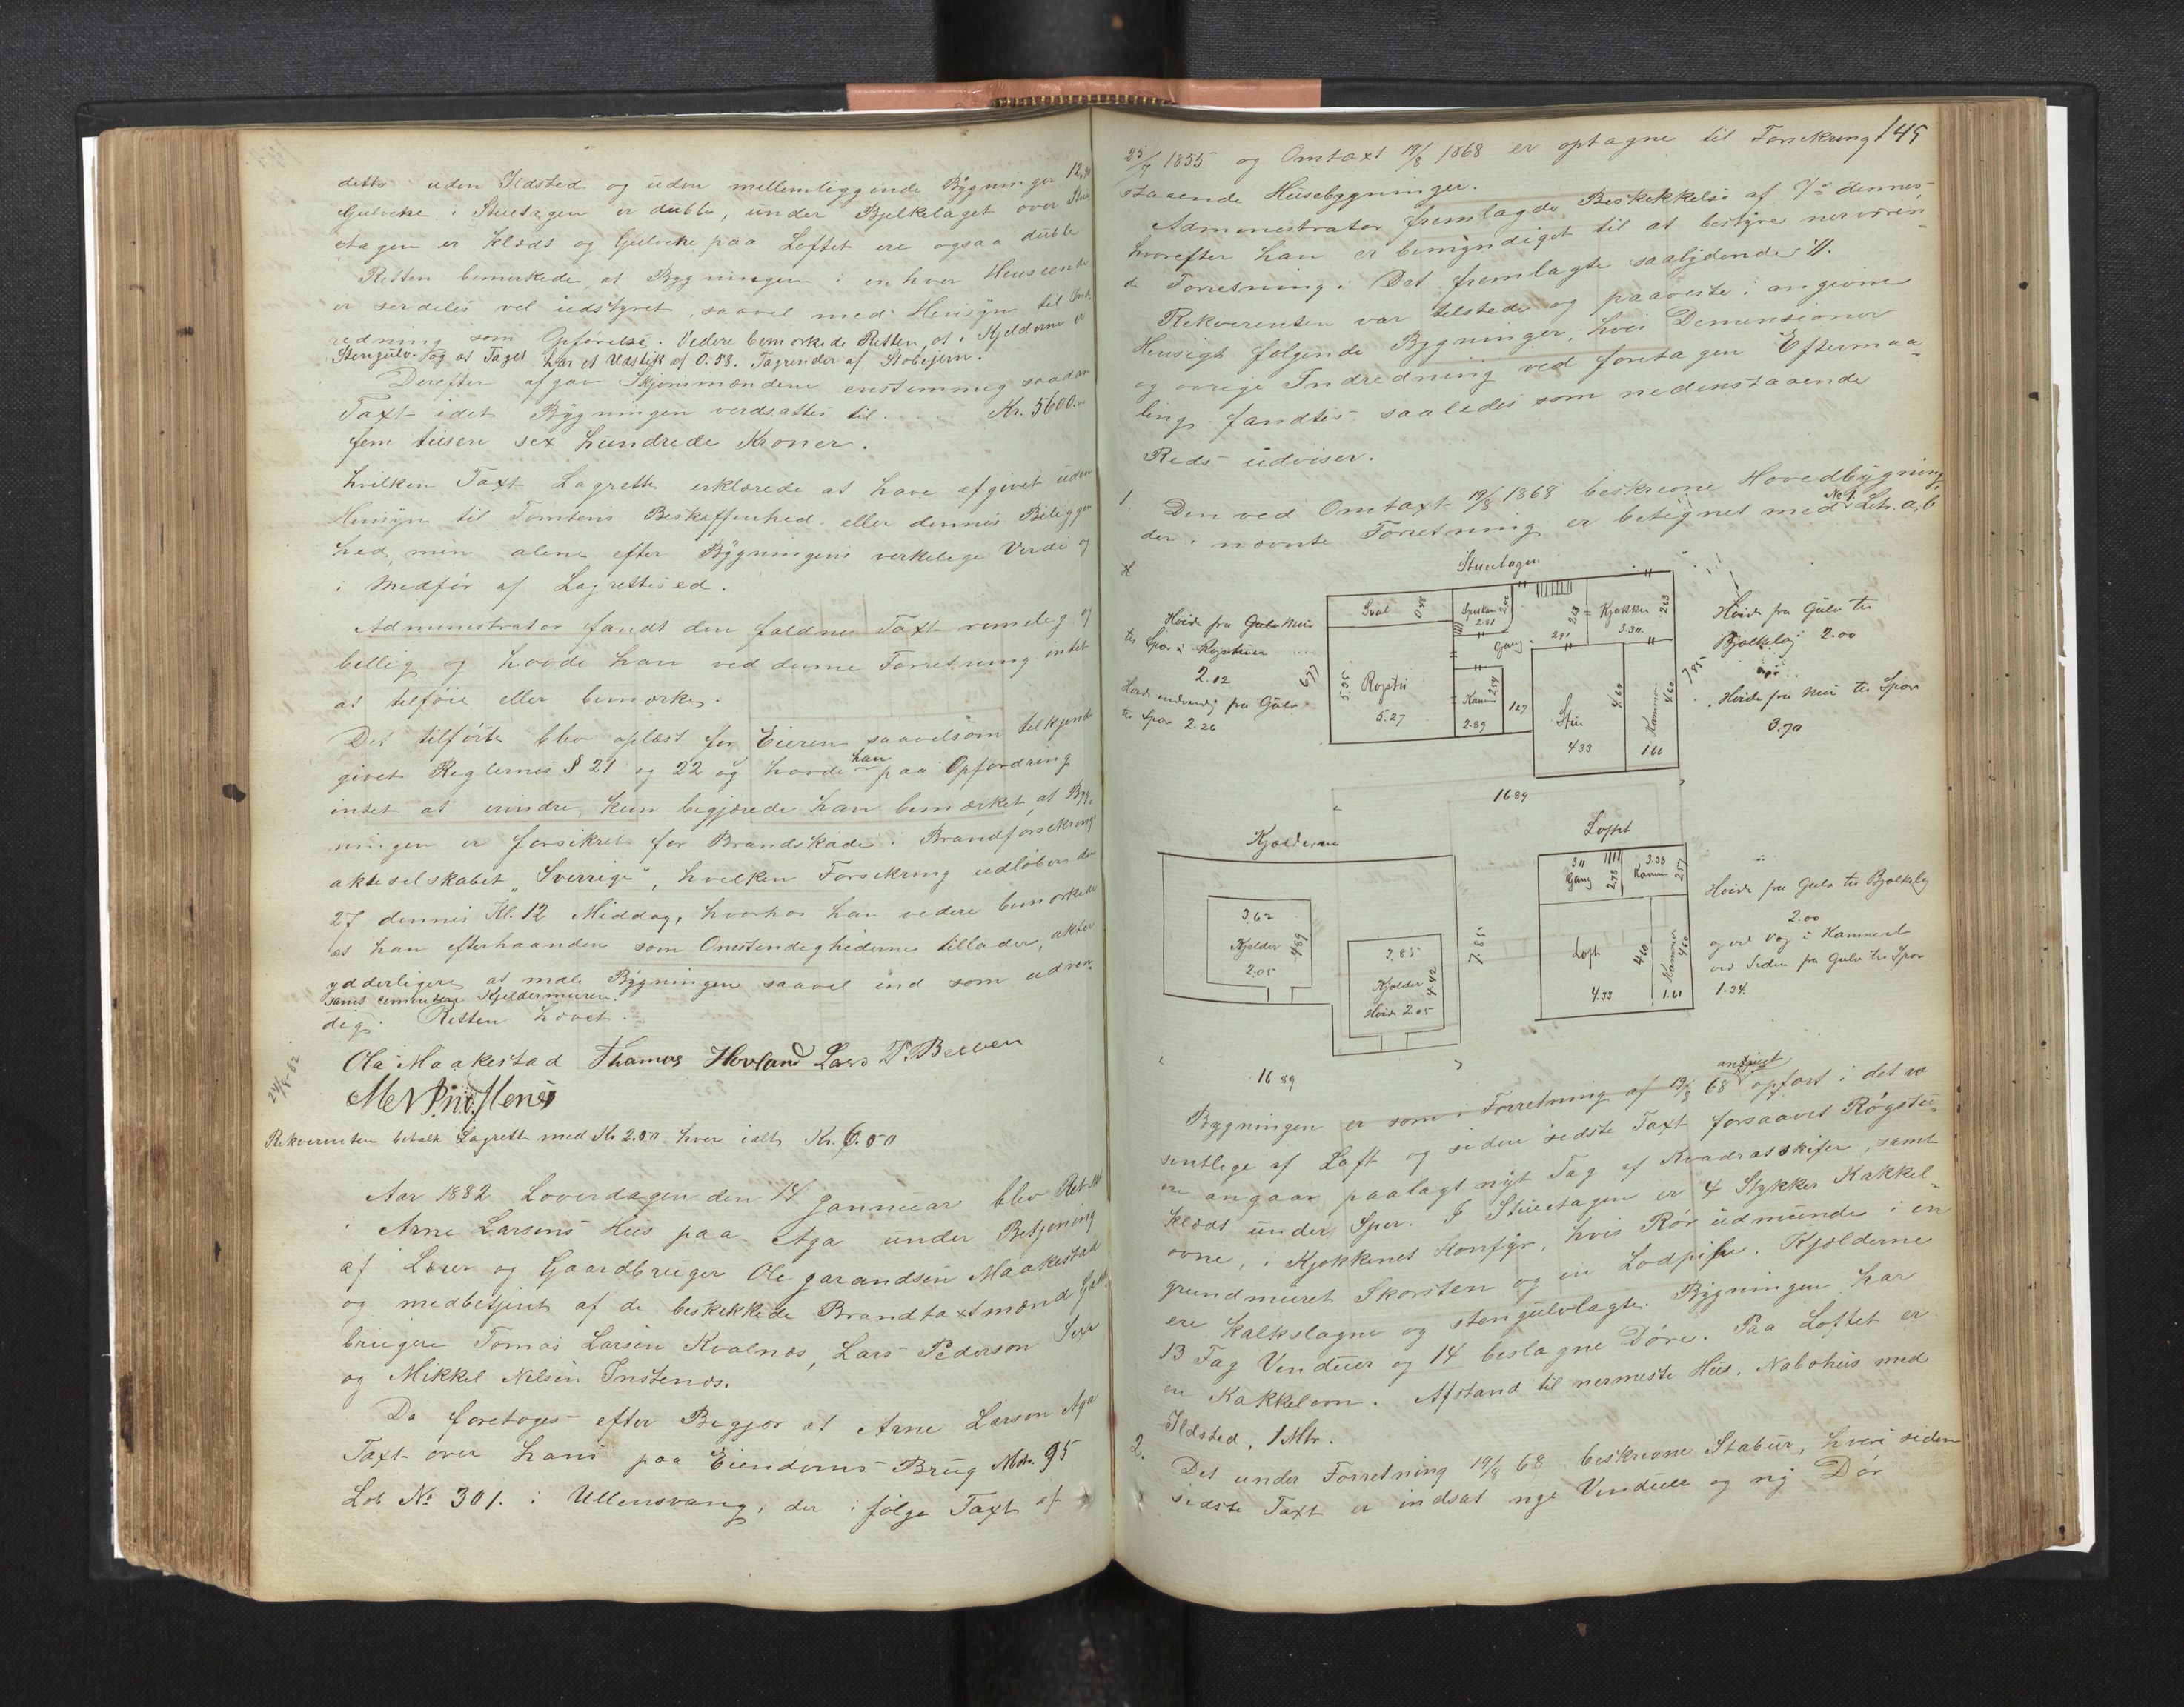 detto uden Ildsted og uden mellemliggende Bygninger 12,
Gulvene i Stuetagen er duble, under Bjelkelaget over Stue
etagen er Klæds og Gulvene paa Loftet ere ogsaa duble
Retten bemerkede, at Bygningen i en hver Henseende
er serdeles vel udstyret, saavel med Hensyn til Ind-
redning som Opførelse. Videre bemerkede Retten, at i Kjelderne er
Stengulv og at Taget har et Udstik af 0.58. Tagrender af Støbejern.
Derefter afgav Skjønsmændene enstemmig saadan
Taxt idet Bygningen verdsattes til . . . . . Kr. 5600.
fem tusen sex hundrede Kroner.
hvilken Taxt Lagrette erklærede at have afgivet uden
Hensyn til Tomtens Beskaffenhed eller dennes Beliggen
hed, men alene efter Bygningens verkelige Verdi og
i Medfør af Lagrettesed.
Administrator fandt den faldne Taxt rimelig og
billig og havde han ved denne Forretning intet
at tilføie eller bemærke.
Det tilførte blev oplæst for Eieren saavelsom tilkjende
givet Reglernes § 21 og 22 og havde han paa Opfordring
intet at erindre, kun begjærede han bemærket, at Byg-
ningen er forsikret for Brandskade i Brandforsekrings
aktieselskabet „Sverrige", hvilken Forsekring udløber den
27 dennes Kl. 12 Middag, hvorhos han videre bemerkede
at han efterhaanden som Omstendeghederne tillader, akter
ydderligere at male Bygningen saavel ind som udven-
samt cementere Kjeldermuren.
dig. Retten hævet.
Ola Maakestad Thomas Hovland Lars P. Berven
24/8-62
Rekvirenten betalte Lagrette med Kr 2.00 hver ialt Kr. 6.00
Aar 1882 Løverdagen den 14 Januar blev Ret sat
i Arne Larsens Hus paa Aga under Betjening
af Lærer og Gaardbruger Ole Garandsen Maakestad
og medbetjent af de beskikkede Brandtaxtmænd Gaard
brugere Tomas Larsen Kvalnes, Lars Pederson Sexe
og Mikkel Nilsen Instenes.
Da foretoges efter Begjær af Arne Larsen Aga
Taxt over hans paa Eiendoms Brug Matr. 95
Løb No 301. i Ullensvang, der i følge Taxt af
149
25/7 1855 og Omtaxt 19/8 1868 er optagne til Forsekring
staaende Husebygninger.
Administrator fremlagde Beskikkelse af 7de dennes
hvorefter han er bemyndiget til at bestyre nerværen-
de Forretning. Det fremlagte saalydende: //.
Rekvirenten var tilstede og paaviste i angivne
Hensigt følgende Bygninger, hvis Dimensioner
og øvrige Indredning ved foretagen Eftermaa-
ling fandtes saaledes som nedenstaaende
Reds udviser.
1. Den ved Omtaxt 19/8 1868 beskrevne Hovedbygning,
der i nævnte Forretning er betegnet med No 1. Litr. a, b
Stuetagen
Høide fra Gulv Mur
til Spær i Røgstuen
2.12
Høide indvendig fra Gulv
til Spær 2.26
6.77
Sval 0.88
Spiskam 2.00
2.81
Gang
2.91
2.63
Kjøkken 2.63
3.30.
Røgstu 5.35
5.27
Kam 2.54
2.89
1.27
Stue 4.60
4.33
Kammer 4.60
1.66
7.85
Høide fra Gulv til
Bjælklag 2.00
Høide fra Mur til Spær
3.70
16 89
Kjælderne
3.62
Kjelder 4.89
2.05
3.85
Kjælder 4.42
Høide 2.05
7.85
16 89
Loftet
3.11
Gang 2.78
3.38
Kammer 2.57
Loft 4.60
4.33
Kammer 4.60
1.61
Høide fra Gulv til Bjælkelag
2.00
og ved Væg i Kammeret
ved Siden fra Gulv til Spær
1.34.
Bygningen er som i Forretning af 19/8 68 opført i det væ
sentlige af Laft og siden sedste Taxt forsaavet Røgstu-
en angaar paalagt nyt Tag af Kvadratskifer, samt
klædt under Sper. I Stuetagen er 4 Stykker Kakkel-
ovne, i Kjøkkenet Komfyr, hvis Rør udmunde i en
grundmuret Skorsten og en Lodpibe. Kjælderne
ere kalkslagne og stengulvlagte. Bygningen har
13 Fag Venduer og 14 beslagne Døre. Paa Loftet er
en Kakkelovn. Afstand til nermeste Hus, Nabohus med
Ildsted, 1 Mtr.
2. Det under Forretning 19/8 68 beskrevne Stabur, hvori siden
sidste Taxt er indsat nye Venduer og ny Dør